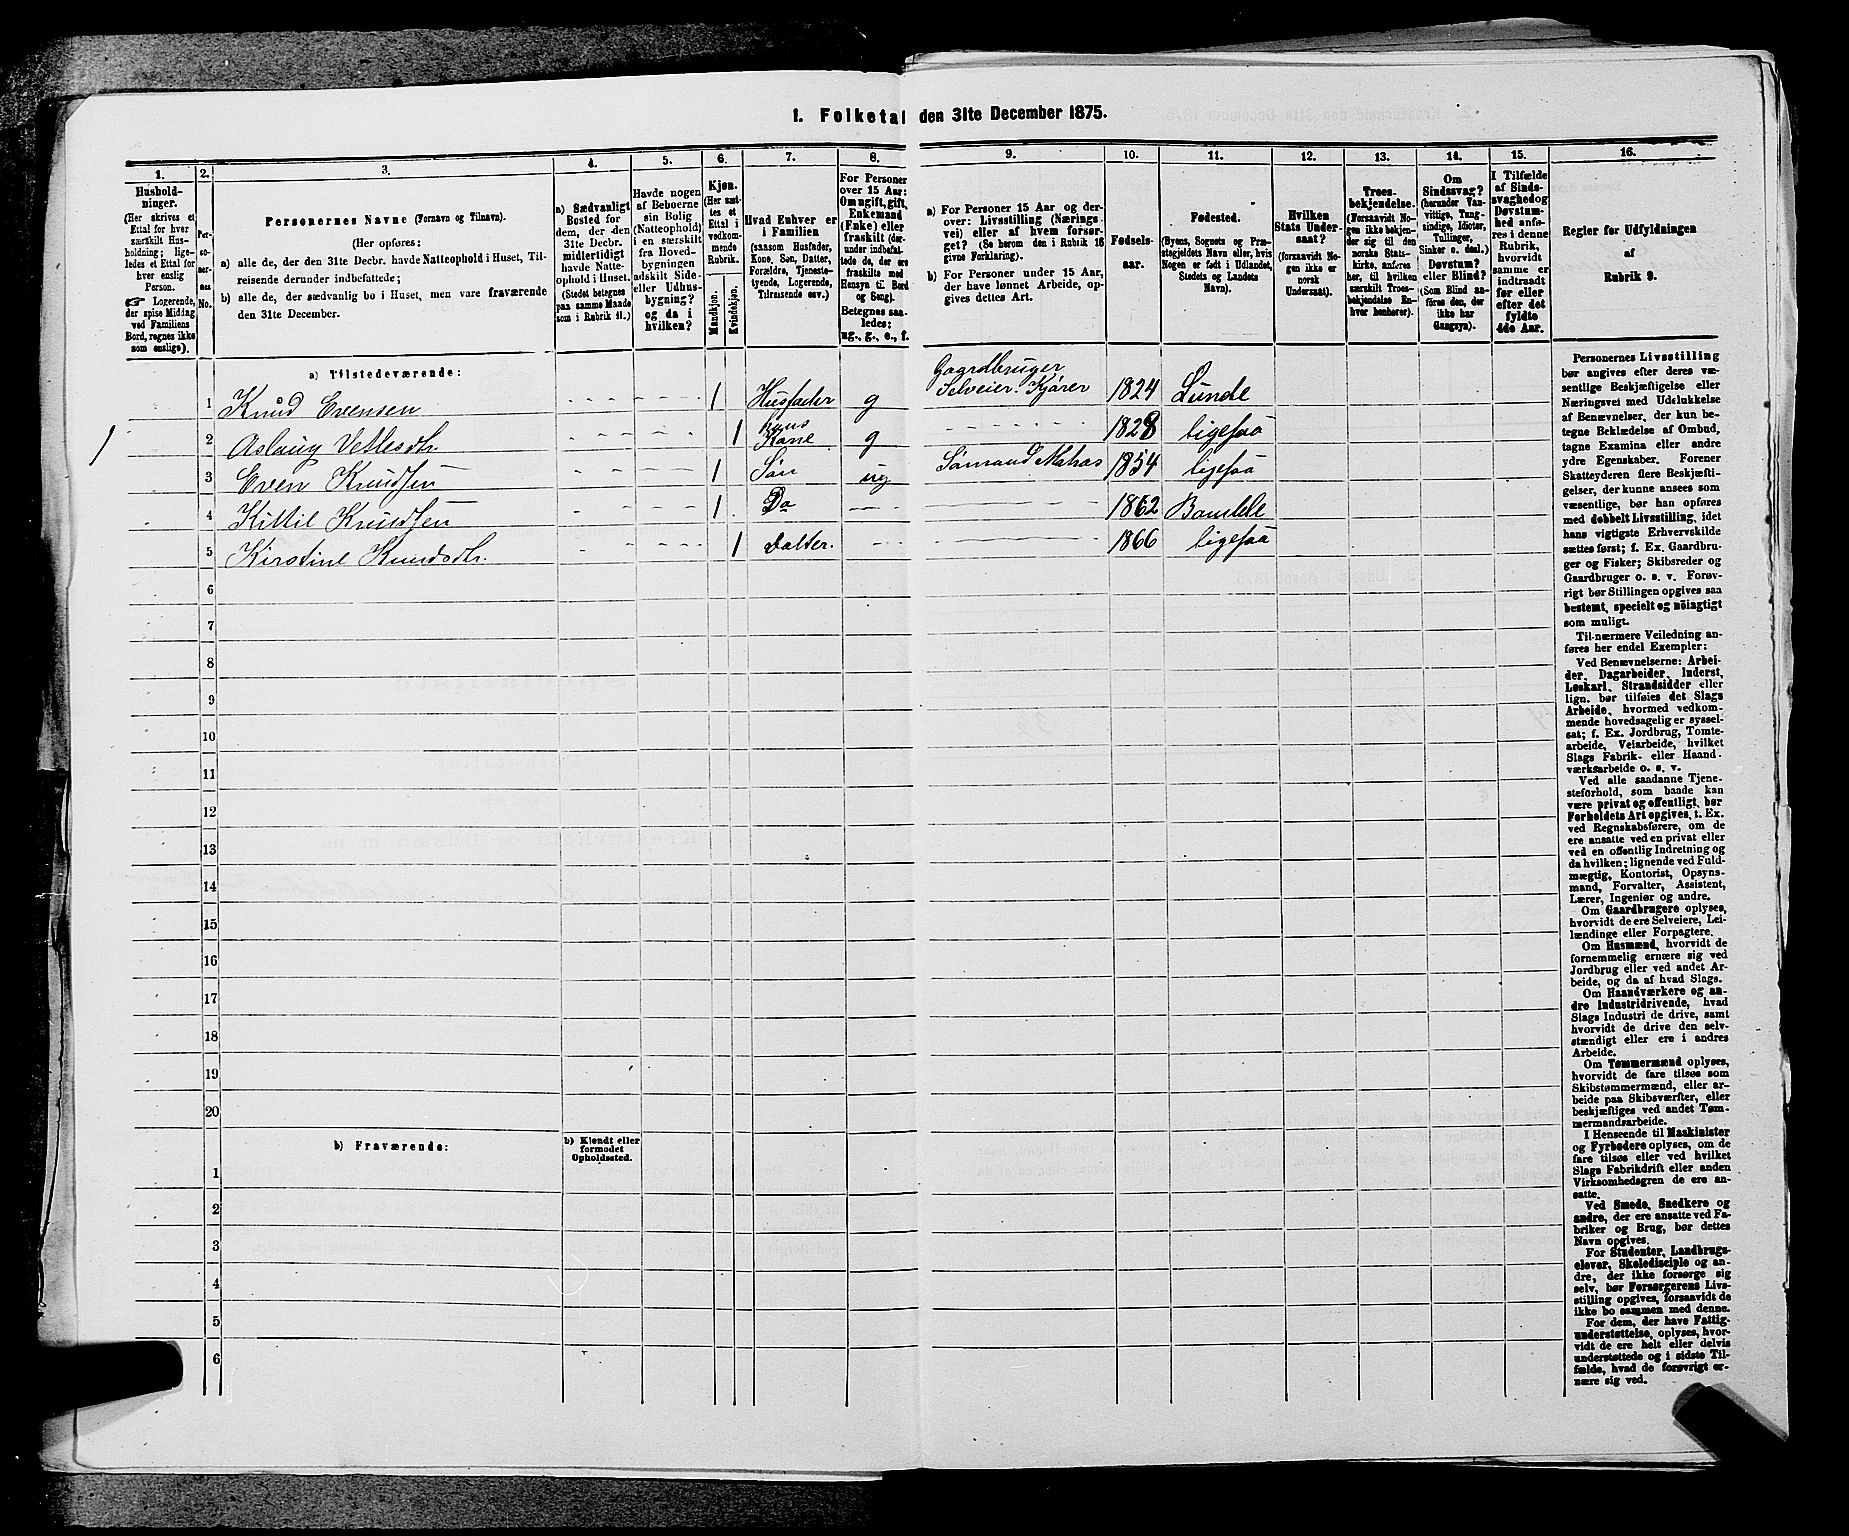 1. Folketal den 31te December 1875.
1.
Hushold-
ninger.
(Her skrives et
Ettal for hver
særskilt Hus-
holdning; lige-
ledes et Ettal for
hver enslig
Person.
☞ Logerende,
der spise Middag
ved Familiens
Bord, regnes ikke
som enslige).
2.
Per-
so-
ner-
nes
No.
3.
Personernes Navne (Fornavn og Tilnavn).
(Her opføres:
a) alle de, der den 31te Decbr. havde Natteophold i Huset, Til-
reisende derunder indbefattede;
b) alle de, der sædvanlig bo i Huset, men vare fraværende
den 31te December.
4.
a) Sædvanligt
Bosted for
dem, der den
31te Decbr.
midlertidigt
havde Natte-
ophold i Huset.
(Stedet betegnes
paa samme Maade
som i Rubrik 11.)
5.
Havde nogen
af Beboerne
sin Bolig
(Natteophold)
i en særskilt
fra Hoved-
bygningen
adskilt Side-
eller Udhus-
bygning?
og da i
hvilken?
6.
Kjøn.
(Her sæt-
tes et
Ettal i
vedkom-
mende
Rubrik.
Mandkjøn.
Kvindekjøn.
7.
Hvad Enhver er
i Familien
(saasom Husfader,
Kone, Søn, Datter,
Forældre, Tjeneste-
tyende, Logerende,
Tilreisende osv.)
8.
For Personer
over 15 Aar:
Om ugift, gift,
Enkemand
(Enke) eller
fraskilt (der-
under indbefat-
tede de, der ere
fraskilte med
Hensyn til Bord
og Seng).
Betegnes saa-
ledes:
ug., g., e., f.
9.
a) For Personer 15 Aar og der-
over: Livsstilling (Nærings-
vei) eller af hvem forsør-
get? (Se herom den i Rubrik 16
givne Forklaring).
b) For Personer under 15 Aar,
der have lønnet Arbeide, op-
gives dettes Art.
10.
Fødsels-
aar.
11.
Fødested.
(Byens, Sognets og Præ-
stegjeldets Navn eller, hvis
Nogen er født i Udlandet,
Stedets og Landets
Navn).
12.
Hvilken
Stats Under-
saat?
(forsaavidt No-
gen ikke er
norsk
Undersaat).
13.
Troes-
bekjendelse.
(Forsaavidt No-
gen ikke bekjen-
der sig til den
norske Stats-
kirke, anføres
her, til hvilken
særskilt Troes-
bekjendelse En-
hver henhører).
14.
Om
Sindssvag?
(herunder Van-
vittige, Tung-
sindige, Idioter,
Tullinger,
Sinker o. desl.)
Døvstum?
eller Blind?
(Som Blind an-
føres den, der
ikke har
Gangsyn).
15.
I Tilfælde
af Sinds-
svaghed og
Døvstum-
hed anfø-
res i denne
Rubrik,
hvorvidt
samme er
indtraadt
før eller
efter det
fyldte
4de Aar.
16.
Regler for Udfyldningen
af
Rubrik 9.
a) Tilstedeværende:
1 Knud Evensen 1 Husfader g Gaardbruger
Selveier. Kjører 1824 Lunde
1 2 Aslaug Vetlesdtr. 1 hans
Kone g 1828 ligesaa
3 Even Knudsen 1 Søn ug Sømand Matros 1854 ligesaa
4 Kittil Knudsen 1 Do 1862 Bamble
5 Kirstine Knudsdtr. 1 Datter. 1866 ligesaa
6
7
8
9
10
11
12
13
14
15
16
17
18
19
20
b) Fraværende:
b) Kjendt eller
formodet
Opholdssted.
1
2
3
4
5
6
Personernes Livsstilling
bør angives efter deres væ-
sentlige Beskjæftigelse eller
Næringsvei med Udelukkelse
af Benævnelser, der kun be-
tegne Beklædelse af Ombud,
tagne Examina eller andre
ydre Egenskaber. Forener
Skatteyderen flere Beskjæfti-
gelser, der kunne ansees som
væsentlige, bør han opføres
med dobbelt Livsstilling, idet
hans vigtigste Erhvervskilde
sættes først; f. Ex. Gaardbru-
ger og Fisker; Skibsreder og
Gaardbruger o. s. v. Forøv-
rigt bør Stillingen opgives saa
bestemt, specielt og nöiagtigt
som muligt.
Til nærmere Veiledning an-
føres her endel Exempler:
Ved Benævnelserne: Arbei-
der, Dagarbeider, Inderst,
Løskarl, Strandsidder eller
lign. bør tilføies det Slags
Arbeide, hvormed vedkom-
mende hovedsagelig er syssel-
sat; f. Ex. Jordbrug, Tomte-
arbeide, Veiarbeide, hvilket
Slags Fabrik- eller Haand-
værksarbeide o. s. v.
Ved alle saadanne Tjene-
steforhold, som baade kan
være privat og offentligt, bør
Forholdets Art opgives, t. Ex.
ved Regnskabsførere, om de
ere ansatte ved en privat eller
ved en offentlig Indretning og
da hvilken; lignende ved Fuld-
mægtig, Kontorist, Opsyns-
mand, Forvalter, Assistent,
Lærer, Ingeniør og andre.
Om Gaardbrugere oplyses,
hvorvidt de ere Selveiere, Lei-
lændinge eller Forpagtere.
Om Husmænd, hvorvidt de
fornemmelig ernære sig ved
Jordbrug eller ved andet Ar-
beide, og da af hvad Slags.
Om Haandværkere og an-
dre Industridrivende, hvad
Slags Industri de drive, samt
hvorvidt de drive den selv-
stændigt eller ere i andres
Arbeide.
Om Tømmermænd oplyses,
hvorvidt de fare tilsøs som
Skibstømmermænd, eller ar-
beide paa Skibsværfter, eller
beskjæftiges ved andet Tøm-
mermandsarbeide.
I Henseende til Maskinister
og Fyrbødere oplyses, om de
fare tilsøs eller ved hvilket
Slags Fabrikdrift eller anden
Virksomhedsgren de ere an-
satte.
Ved Smede, Snedkere og
andre, der ere ansatte ved Fa-
briker og Brug, bør dettes
Navn opgives.
For Studenter, Landbrugs-
elever, Skoledisciple og an-
dre, der ikke forsørge sig
selv, bør Forsørgerens Livs-
stilling opgives, forsaavidt de
ikke bo sammen med denne.
For dem, der have Fattig-
understøttelse, oplyses, hvor-
vidt de ere helt eller delvis
understøttede og i sidste Til-
fælde, hvad de forøvrigt er-
nære sig ved.